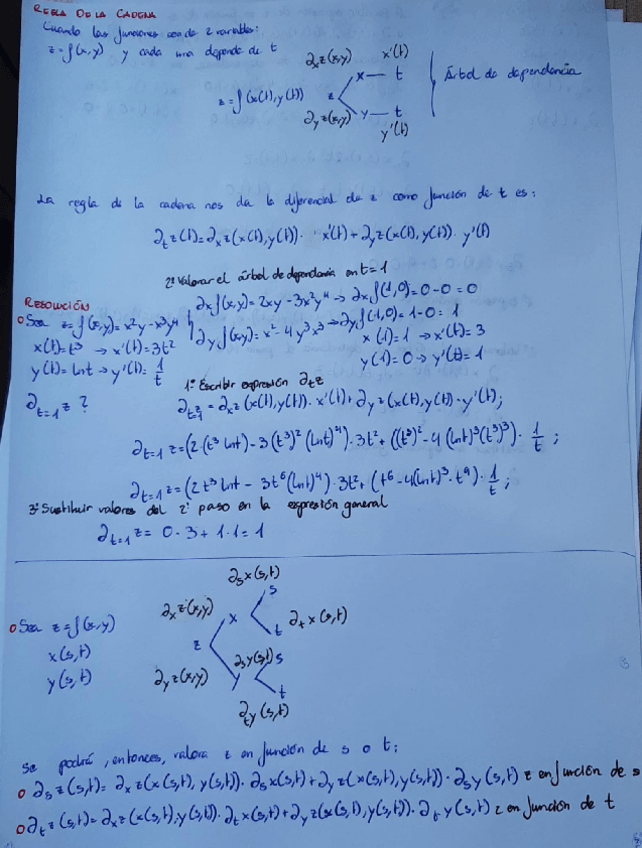 REGLA DE LA CADENA
Cuando las funciones son de 2 variables:
z=f(x,y) y cada una depende de t
∂ₓz(x,y) x'(t)
x — t
z=f(x(t),y(t)) z
y — t
∂ᵧz(x,y) y'(t)
Árbol de dependencia
La regla de la cadena nos da la diferencial de z como función de t es:
∂ₜz(t)=∂ₓz(x(t),y(t))· x'(t)+∂ᵧz(x(t),y(t))· y'(t)
2º Valorar el árbol de dependencia en t=1
RESOLUCIÓN
∂ₓf(x,y)=2xy-3x²y⁴→∂ₓf(1,0)=0-0=0
Sea z=f(x,y)=x²y-x³y⁴
∂ᵧf(x,y)=x²-4y³x³→∂ᵧf(1,0)=1-0=1
x(t)=t³ → x'(t)=3t²
x(1)=1 → x'(t)=3
y(t)=lnt → y'(t)=1/t
y(1)=0 → y'(t)=1
1º Escribir expresión ∂ₜz
∂ₜ₌₁z ?
∂ₜ₌₁z=∂ₓz(x(t),y(t))·x'(t)+∂ᵧz(x(t),y(t)·y'(t);
∂ₜ₌₁z=(2(t³lnt)-3(t³)²(lnt)⁴)·3t²+((t³)²-4(lnt)³(t³)³)·1/t;
∂ₜ₌₁z=(2t³lnt-3t⁶(lnt)⁴)·3t²+(t⁶-4(lnt)³·t⁹)·1/t;
3º Sustituir valores del 2º paso en la expresión general
∂ₜ₌₁z=0·3+1·1=1
∂ₛx(s,t)
s
∂ₓz(x,y) x
Sea z=f(x,y) t ∂ₜx(s,t)
x(s,t) z
∂ₛy(s,t) s
y(s,t) ∂ᵧz(x,y) y
t
∂ₜy(s,t)
Se podrá, entonces, valora z en función de s o t:
∂ₛz(s,t)=∂ₓz(x(s,t),y(s,t))·∂ₛx(s,t)+∂ᵧz(x(s,t),y(s,t))·∂ₛy(s,t) z en función de s
∂ₜz(s,t)=∂ₓz(x(s,t),y(s,t))·∂ₜx(s,t)+∂ᵧz(x(s,t),y(s,t))·∂ₜy(s,t) z en función de t